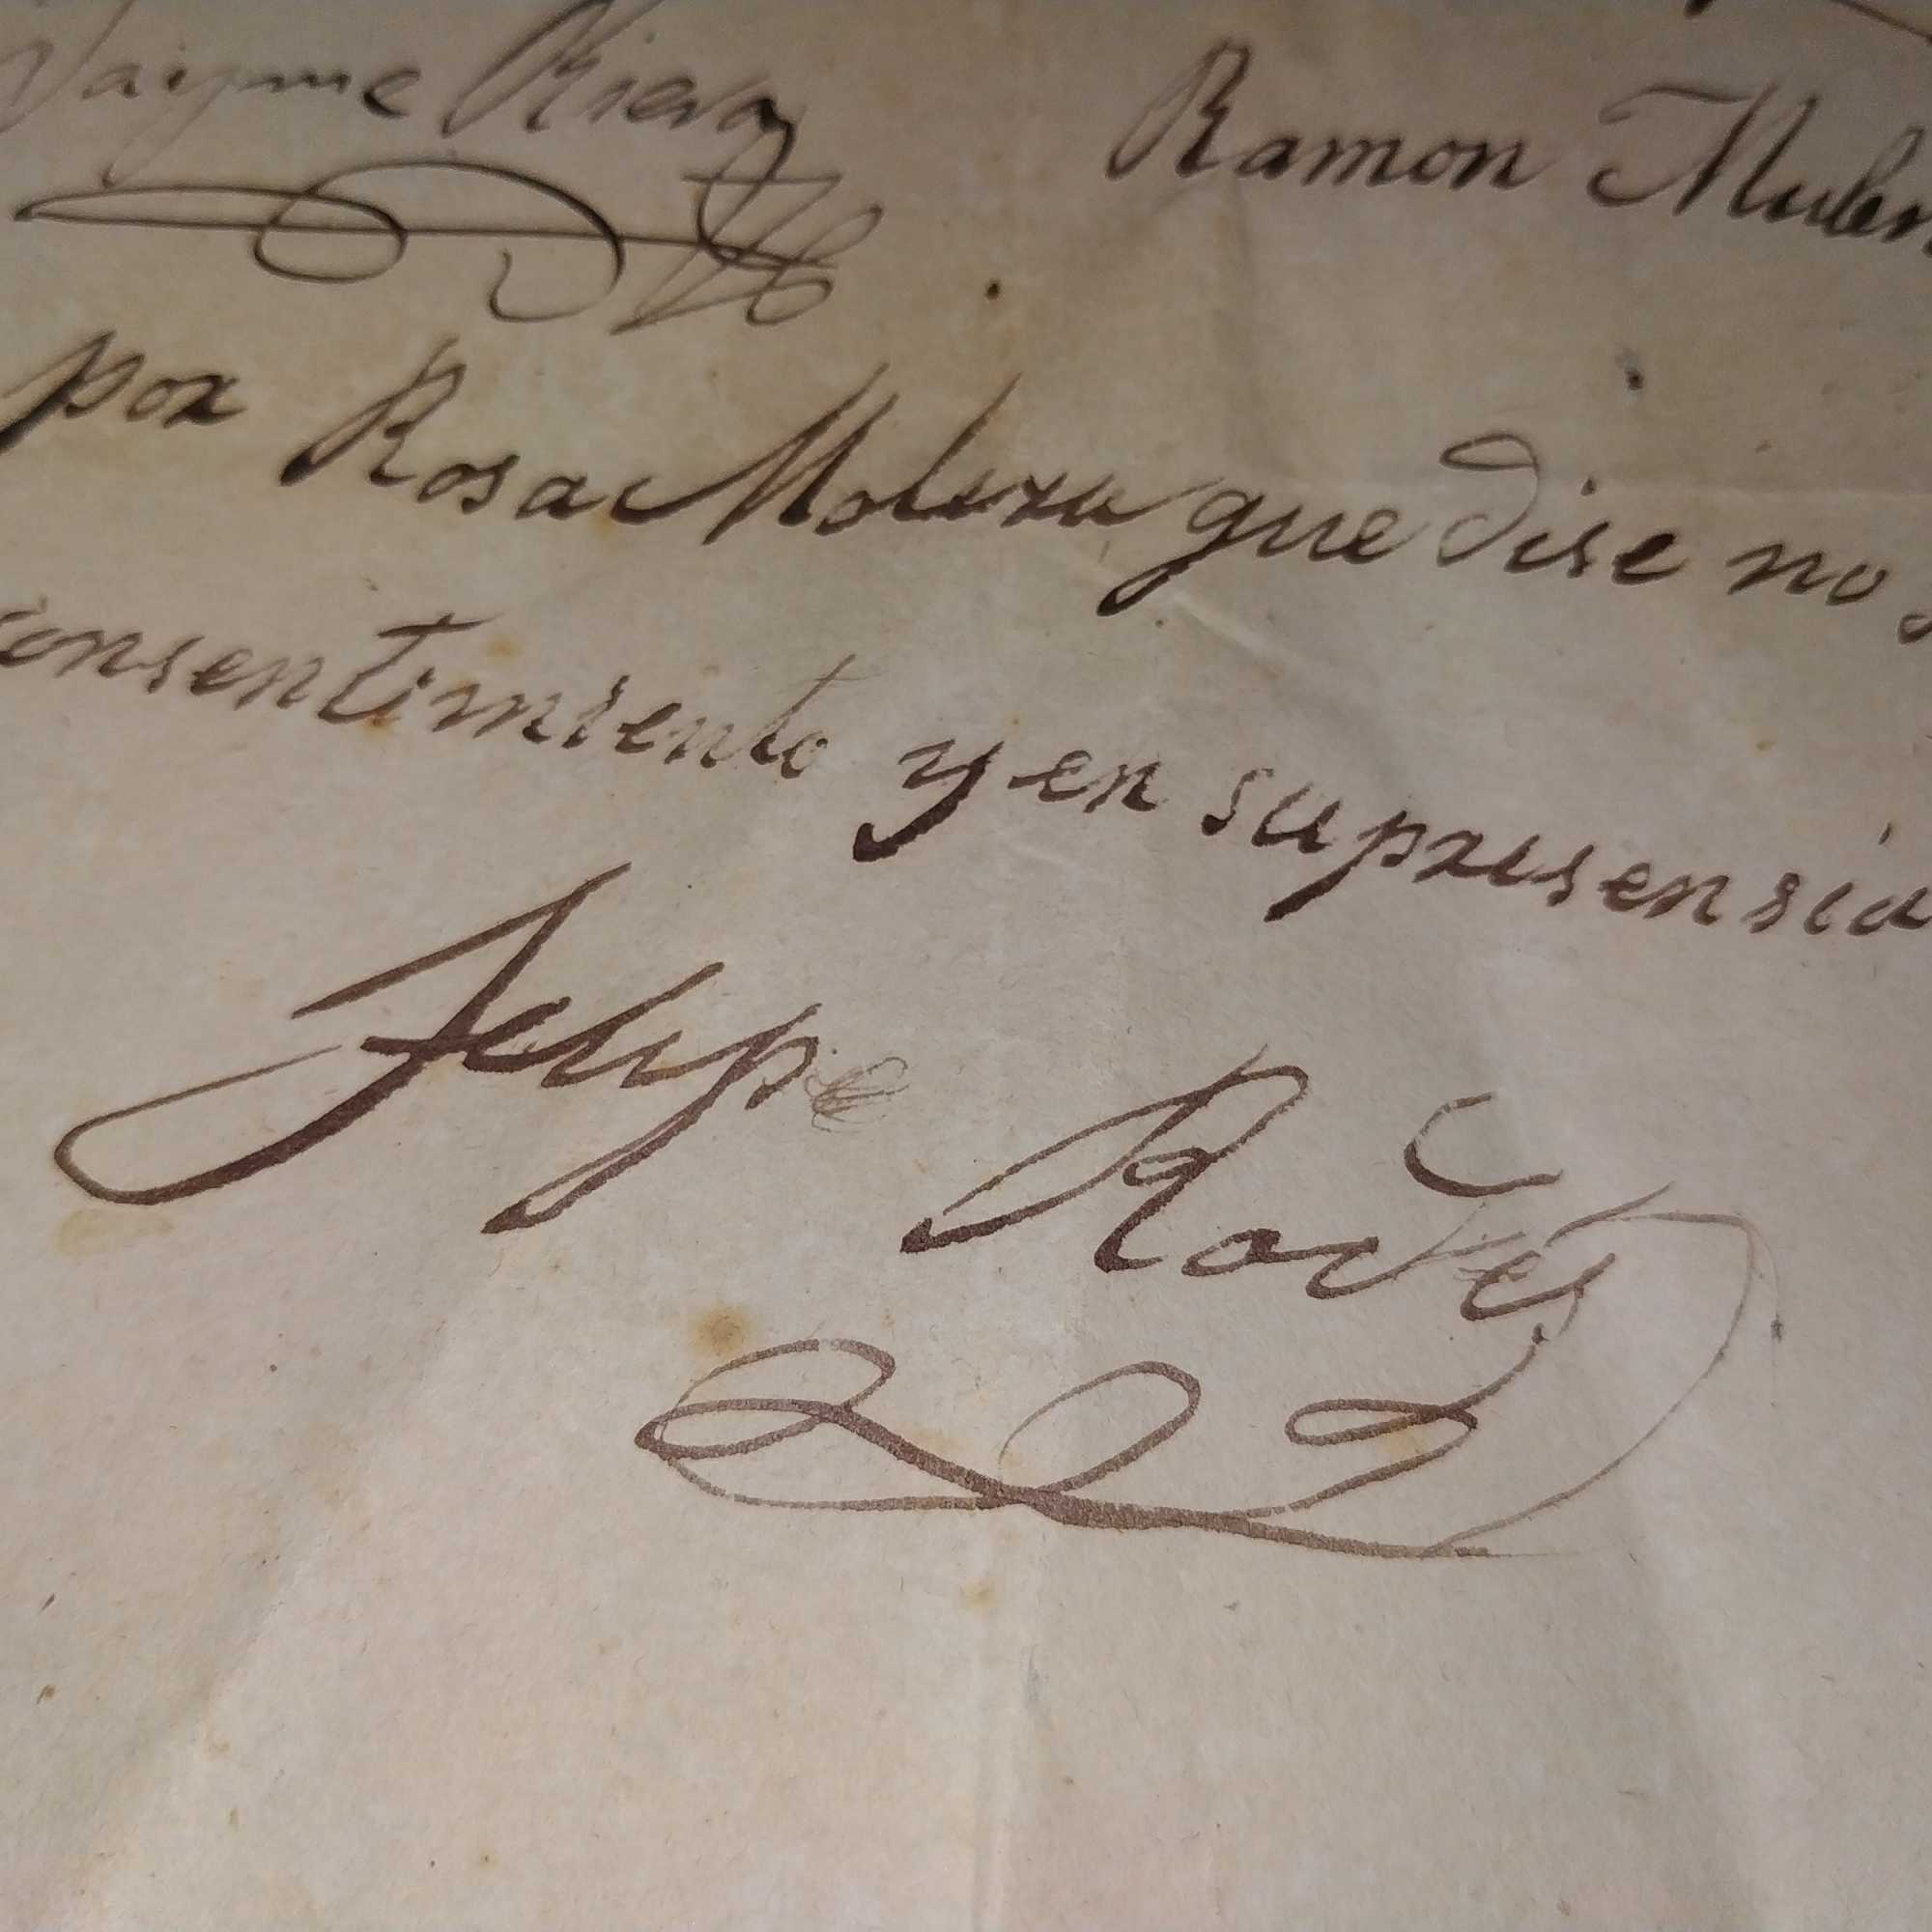 Jayme Riera Ramon Mulen
por Rosa Molera que dise no s
consentimiento y en supresensia
Felipe Rodes